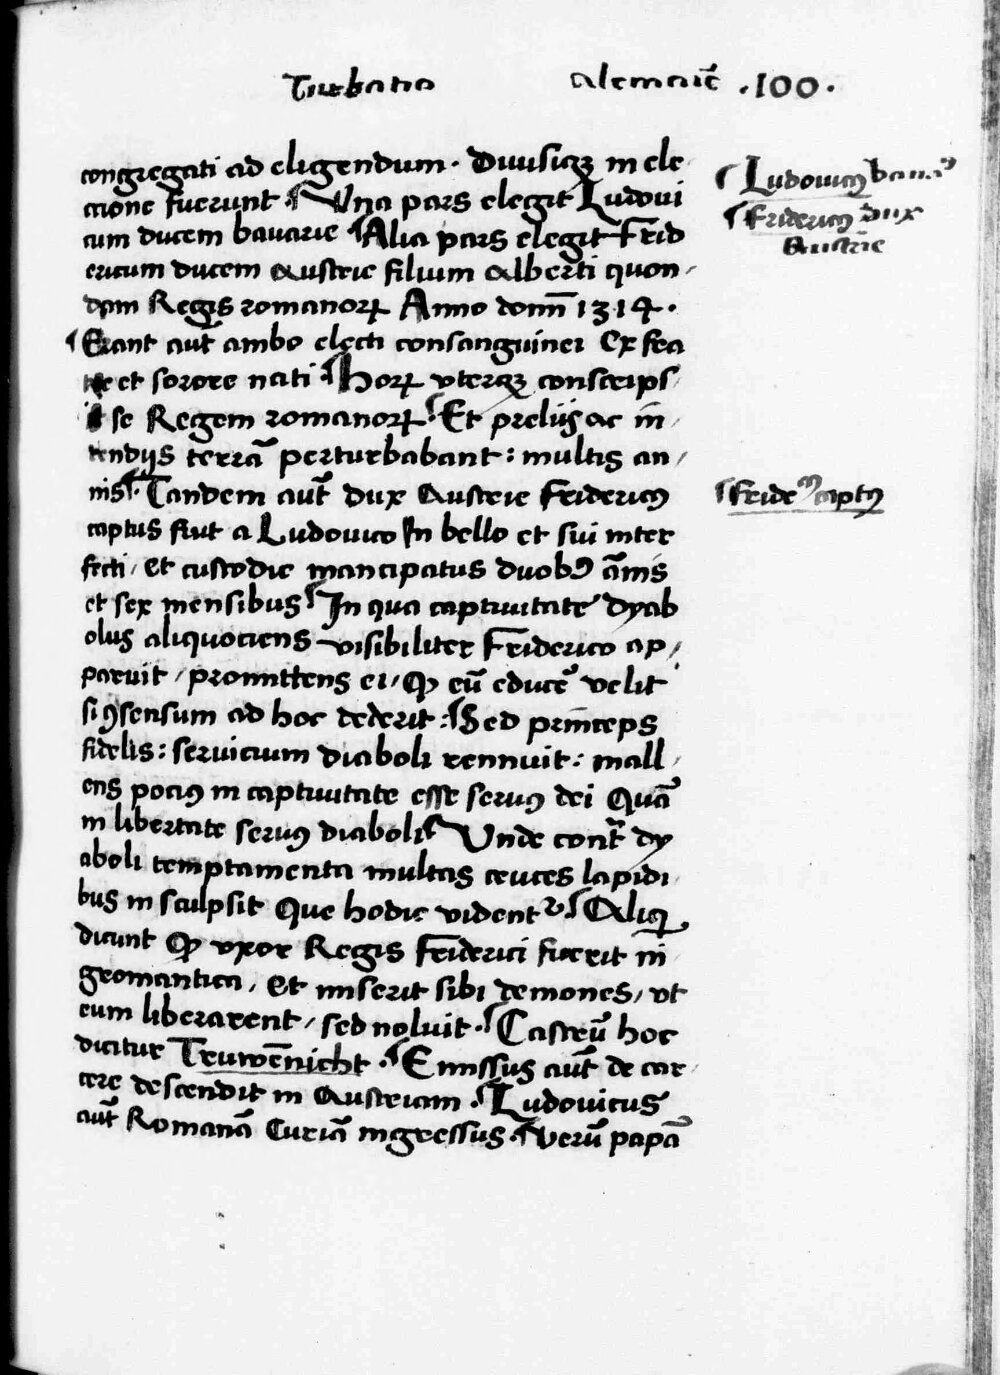 Turbatio Alemaīe ·100·
congregati ad eligendum · Diuisiqꝫ in ele
ctione fuerunt · Una pars elegit Ludoui
cum ducem bauarie Alia pars elegit Frid
ericum ducem Austrie filium Alberti quon
dam Regis romanoꝝ Anno domī 1314 ·
Erant aut̄ ambo electi consanguinei Ex fra
et sorore nati · Hoꝝ vterqꝫ conscrips
it se Regem romanoꝝ · Et preliis ac in
cendijs terrā perturbabant : multis an
nis · Tandem aut̄ dux Austrie Fridericꝰ
captus fuit a Ludouico In bello et sui inter
fecti / et custodie mancipatus duobꝰ ānis
et sex mensibus · In qua captiuitate dyab
olus aliquociens visibiliter Friderico ap
paruit / promittens ei / ꝙ eū educē velit
si ꝯsensum ad hoc dederit : Sed princeps
fidelis : seruicium diaboli rennuit : mall
ens pociꝰ in captiuitate esse seruꝰ dei Quā
in libertate seruꝰ diaboli Unde cont̄ dy
aboli temptamenta multas cruces lapidi
bus in sculpsit Que hodie vident᷑ · Aliqͥ
dicunt ꝙ vxor Regis Friderici fuerit ni
gromantica / Et miserit sibi demones / vt
eum liberarent / sed noluit · Castrū hoc
dicitur Truwēnicht · Emissus aut̄ de car
cere descendit in Austriam · Ludouicus
aut̄ Romanā Curiā ingressus · Verū papā
Ludouicꝰ
Fridericꝰ dux
Austrie
Frideᶜꝰ captꝰ